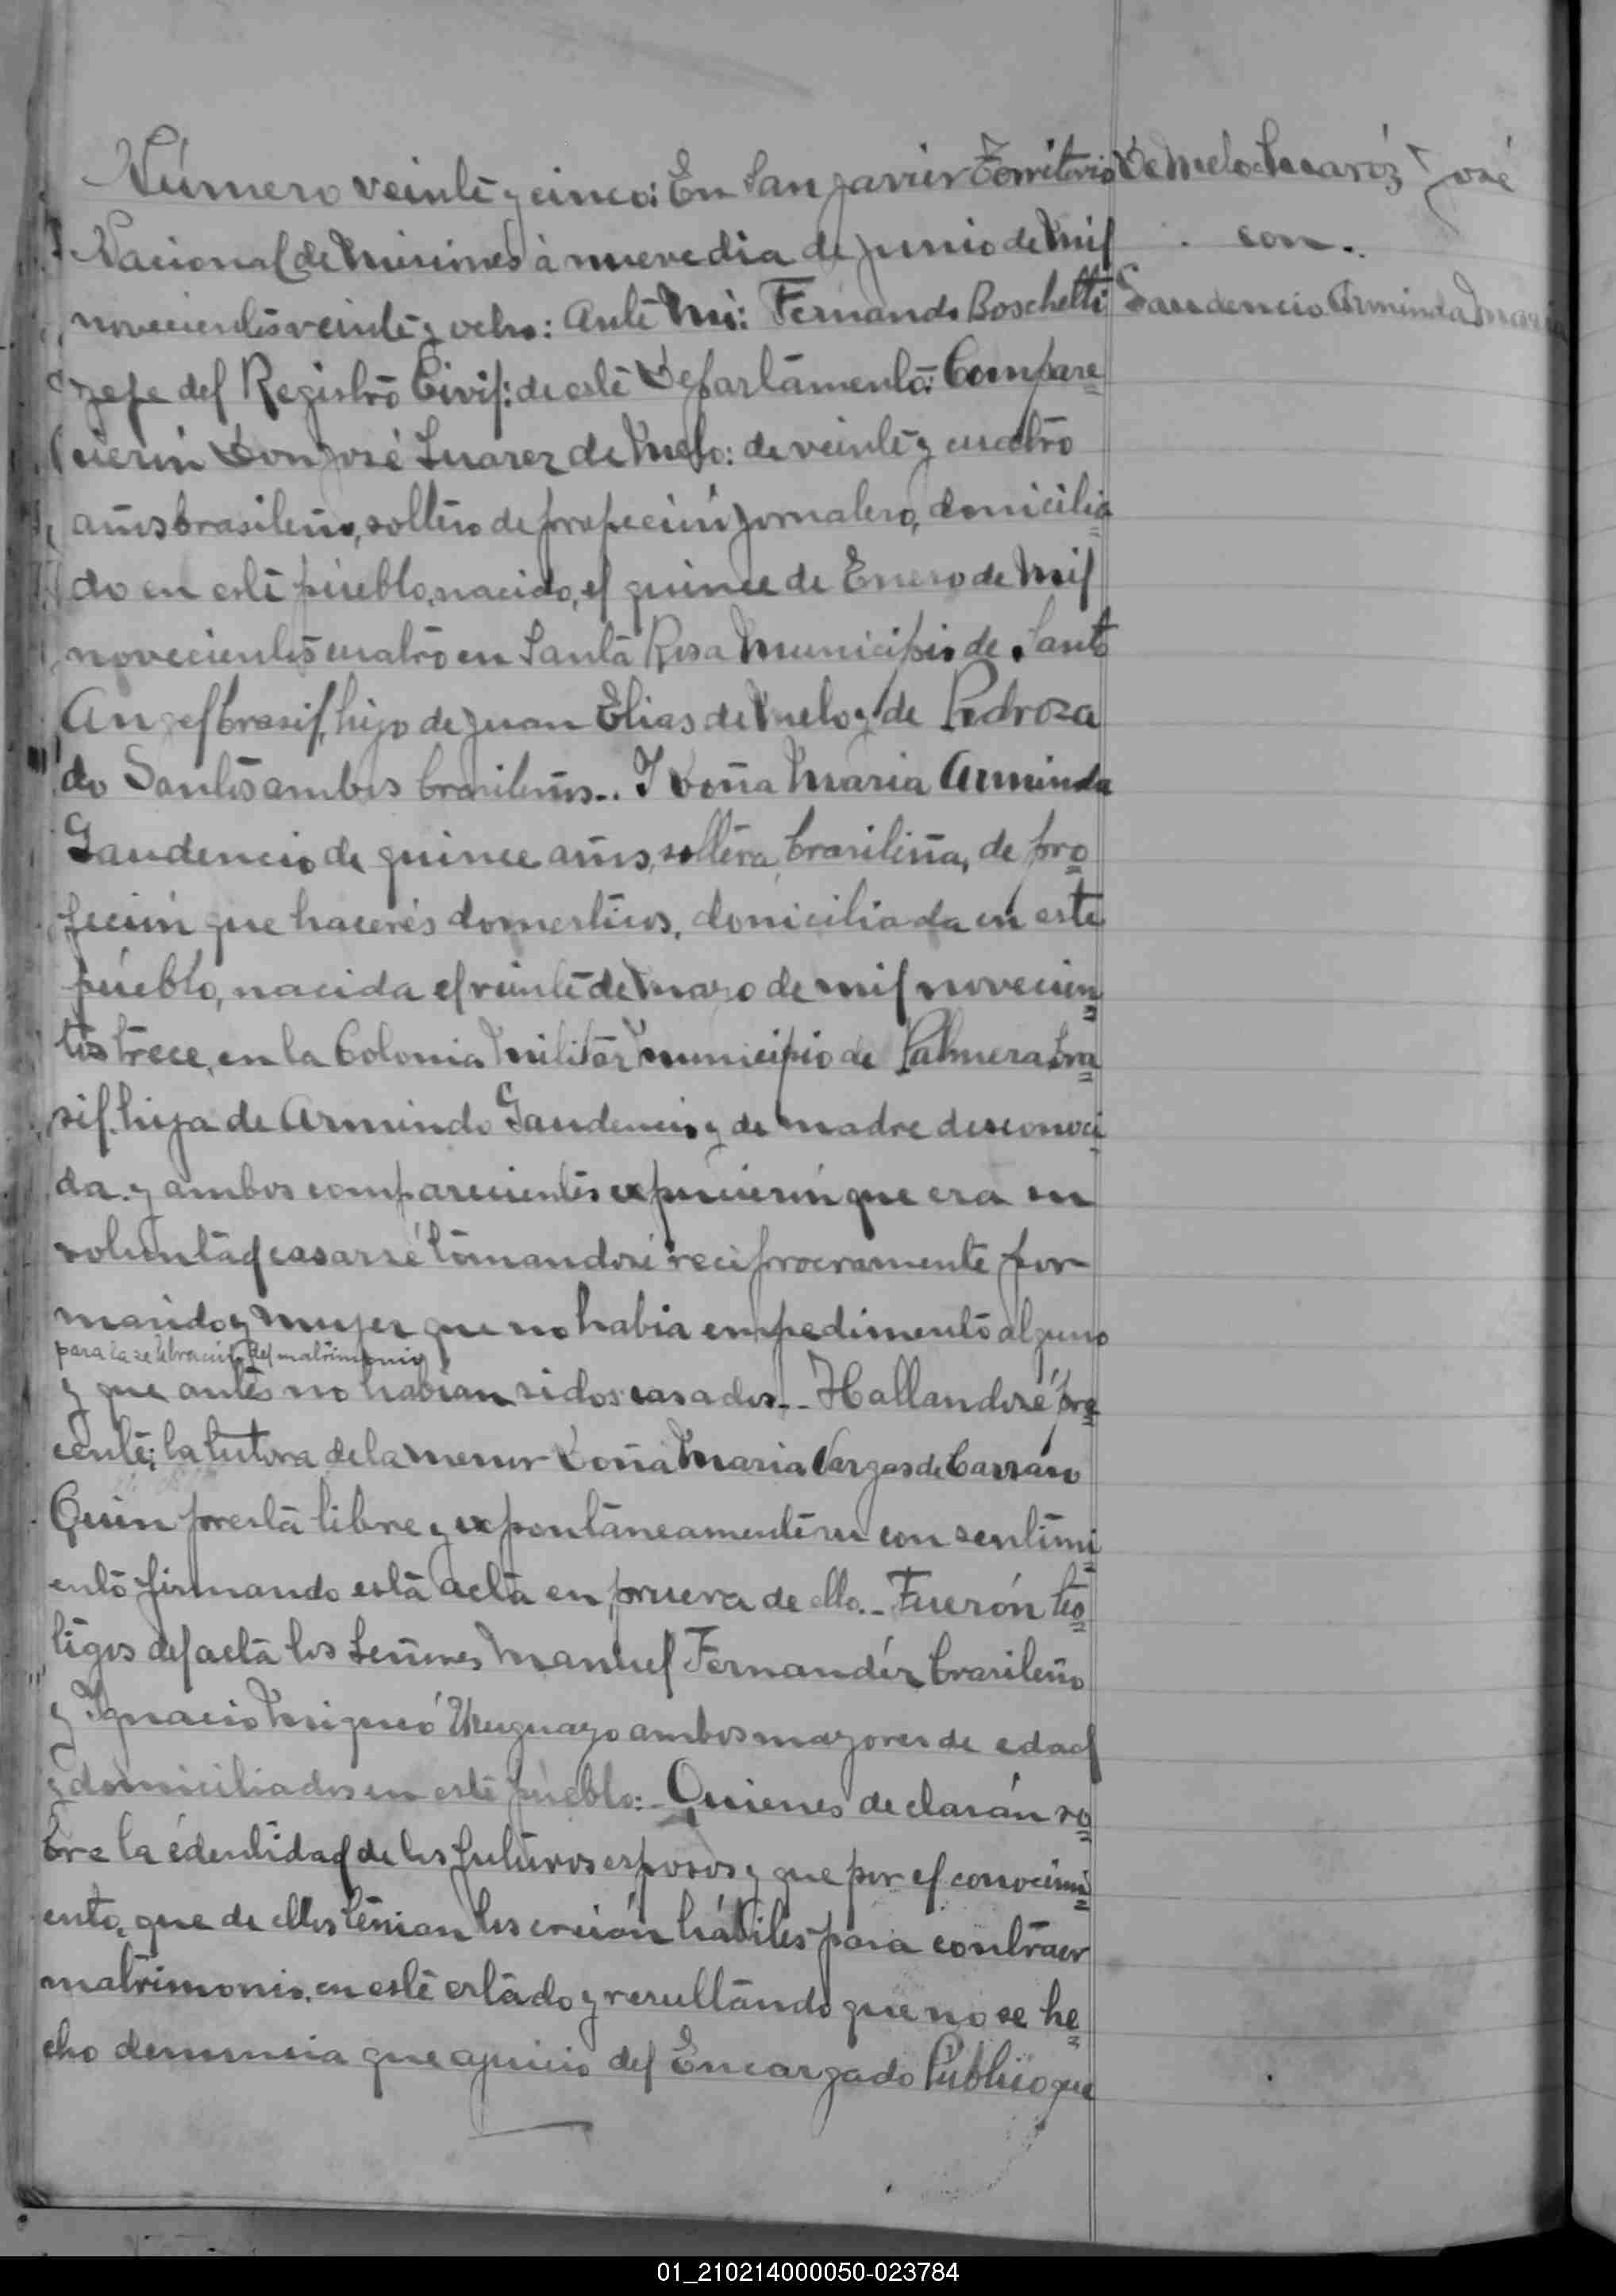 Número veinte y cinco: En San Javier Territorio
Nacional de Misiones à nueve dia de junio de Mil
novecientos veinte y ocho: Ante Mi: Fernando Boschetti
Jefe del Registro Civil: de este Departamento: Compare
cierón Don José Suarez de Melo: de veinte y cuatro
años brasileño, soltero de propeción jornalero, domicilia
do en este pueblo, nacido, el quince de Enero de Mil
novecientos cuatro en Santa Rosa Municipio de Santo
Angel brasil, hijo de Juan Elias de Melo y de Pedroza
do Santos ambos brasileños.. Y Doña Maria Arminda
Gaudencio de quince años, soltera, brasileña, de pro
feción que hacerés domesticos, domiciliada en este
pueblo, nacida el veinte de Mayo de mil novecien
tos trece, en la Colonia Militar Municipio de Palmera bra
sil. hija de Armindo Gaudencio y de madre desconoci
da. y ambos comparecientes expucierón que era su
voluntad casarsé tomandosé reciprocramente por
marido y mujer que no habia empedimento alguno
para la selebración del matrimonio
y que antes no habian sidos casados.. Hallandosé pre
cente; la tutora de la menor Doña Maria Vargas de Carraro
Quien presta libre y expontaneamente su consentimi
ento firmando esta acta en prueva de ello.- Fuerón tes
tigos del acta los Señores Manuel Fernandéz brasileño
y Ignacio Migueó Uruguayo ambos mayores de edad
y domiciliados en este pueblo:- Quienes declarán so
bre la édentidad de los futuros esposos y que por el conocimi
ento, que de ellos tenian los creián hábiles para contraer
matrimonio. en este estado y resultando que no se he
cho denuncia que a juicio del Encargado Público que
De Melo Suaréz José
con.
Gaudencio Arminda Maria
01_210214000050-023784